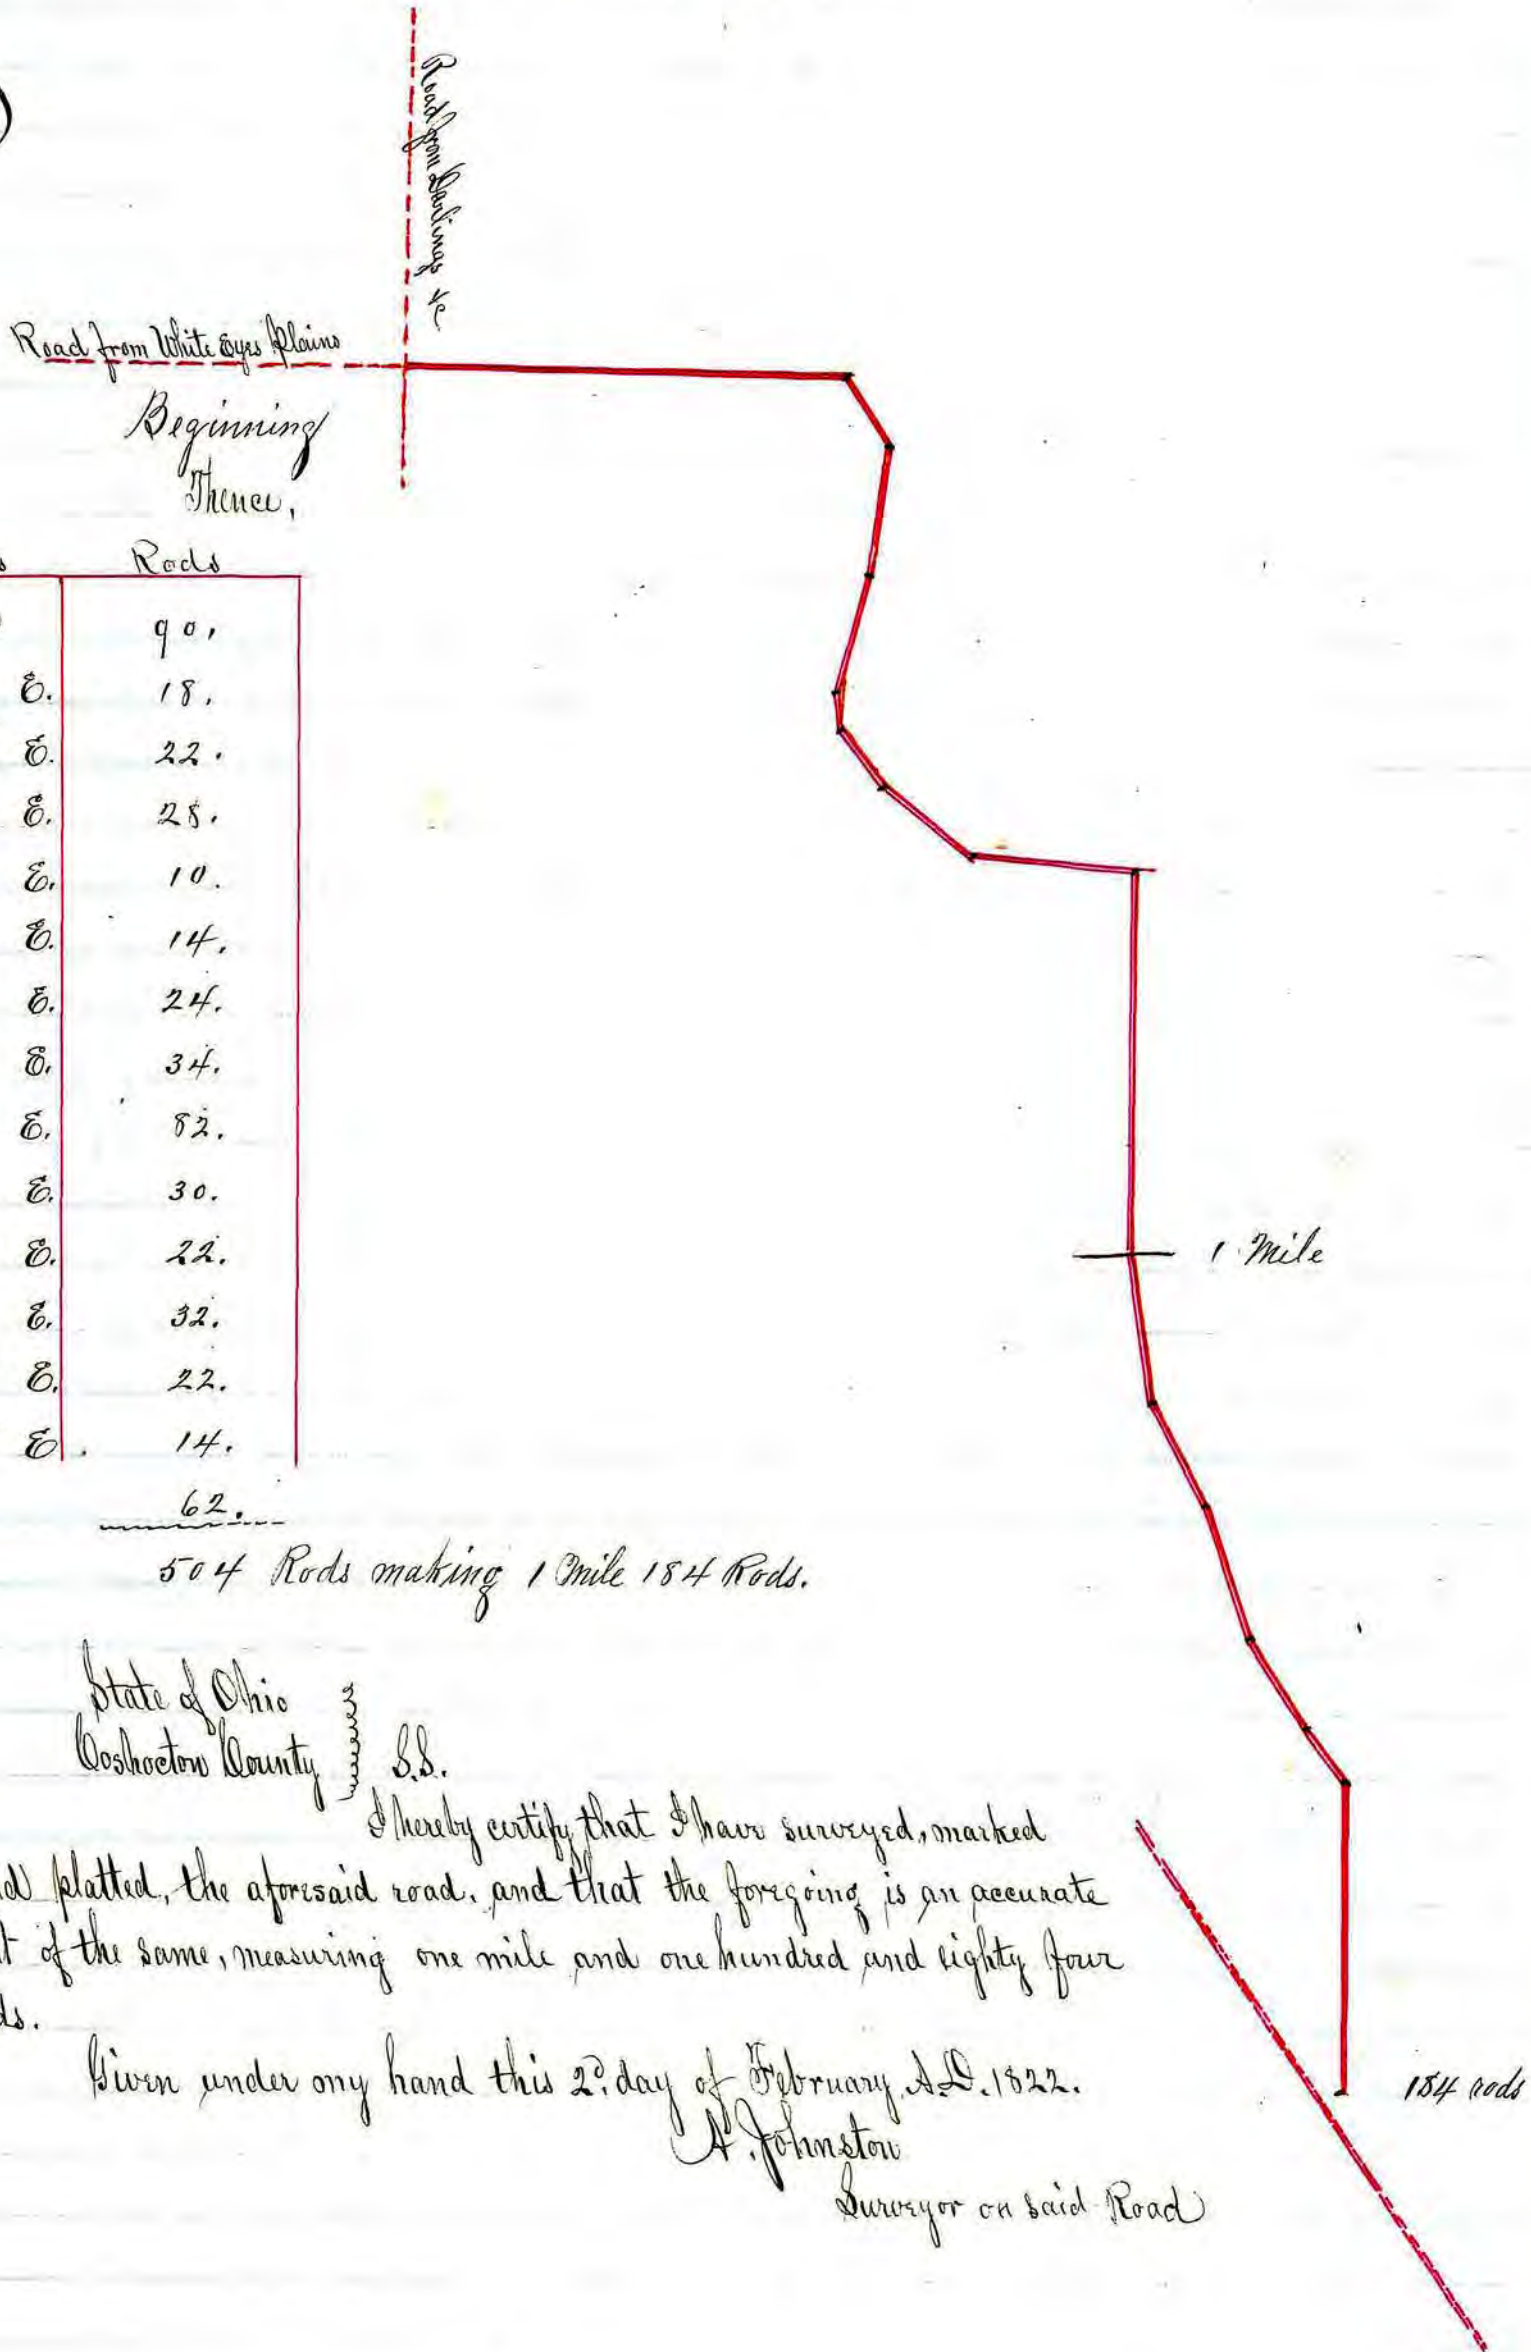 Road from Darlings &c
Road from White Eyes Plains
Beginning
Thence,
Rods
90,
E. 18.
E. 22.
E. 28.
E. 10.
E. 14.
E. 24.
E. 34.
E. 82.
E. 30.
E. 22.
E. 32.
E. 22.
E. 14.
62.
504 Rods making 1 Mile 184 Rods.
1 Mile
State of Ohio
Coshocton County } S.S.
I hereby certify that I have surveyed, marked
d platted, the aforesaid road, and that the foregoing is an accurate
t of the same, measuring one mile and one hundred and eighty four
ds.
Given under my hand this 2d. day of February, A.D. 1822.
184 rods
A. Johnston
Surveyor on said Road